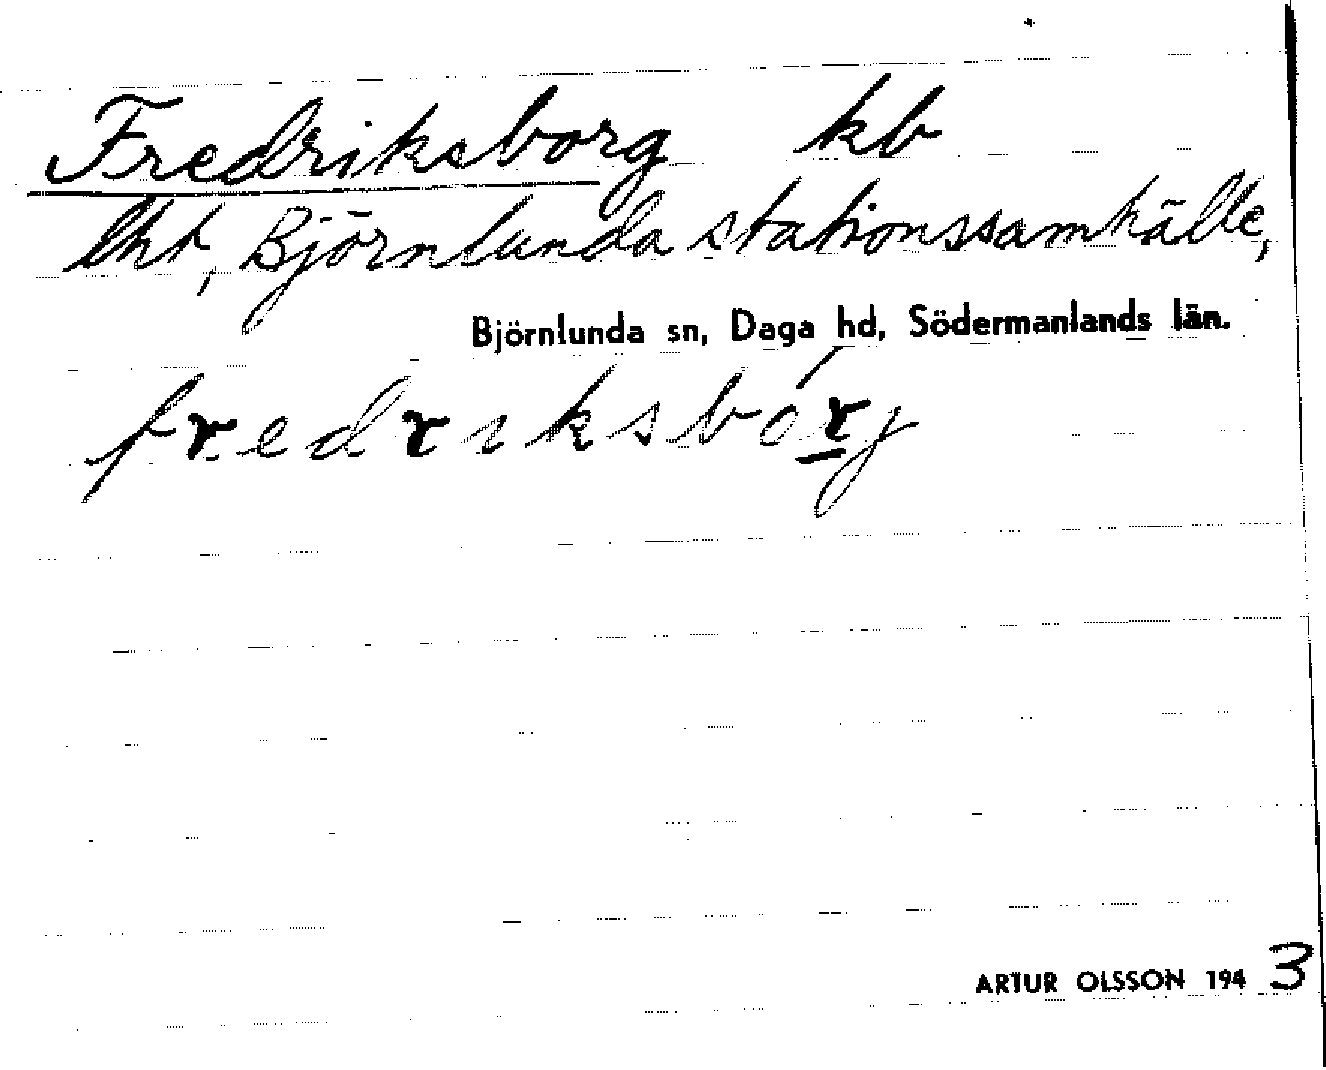 Fredriksborg kb
lht, Björnlunda stationssamhälle,
Björnlunda sn, Daga hd, Södermanlands län.
fredrıksbórj
ARTUR OLSSON 1943